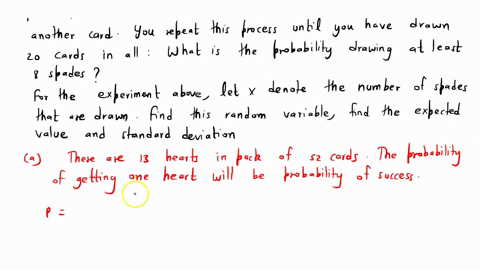 another card. You repeat this process until you have drawn
20 cards in all : What is the probability drawing at least
8 spades ?
For the experiment above, let x denote the number of spades
that are drawn. Find this random variable, find the expected
value and standard deviation
(a) There are 13 hearts in pack of 52 cards. The probability
of getting one heart will be probability of success.
P =